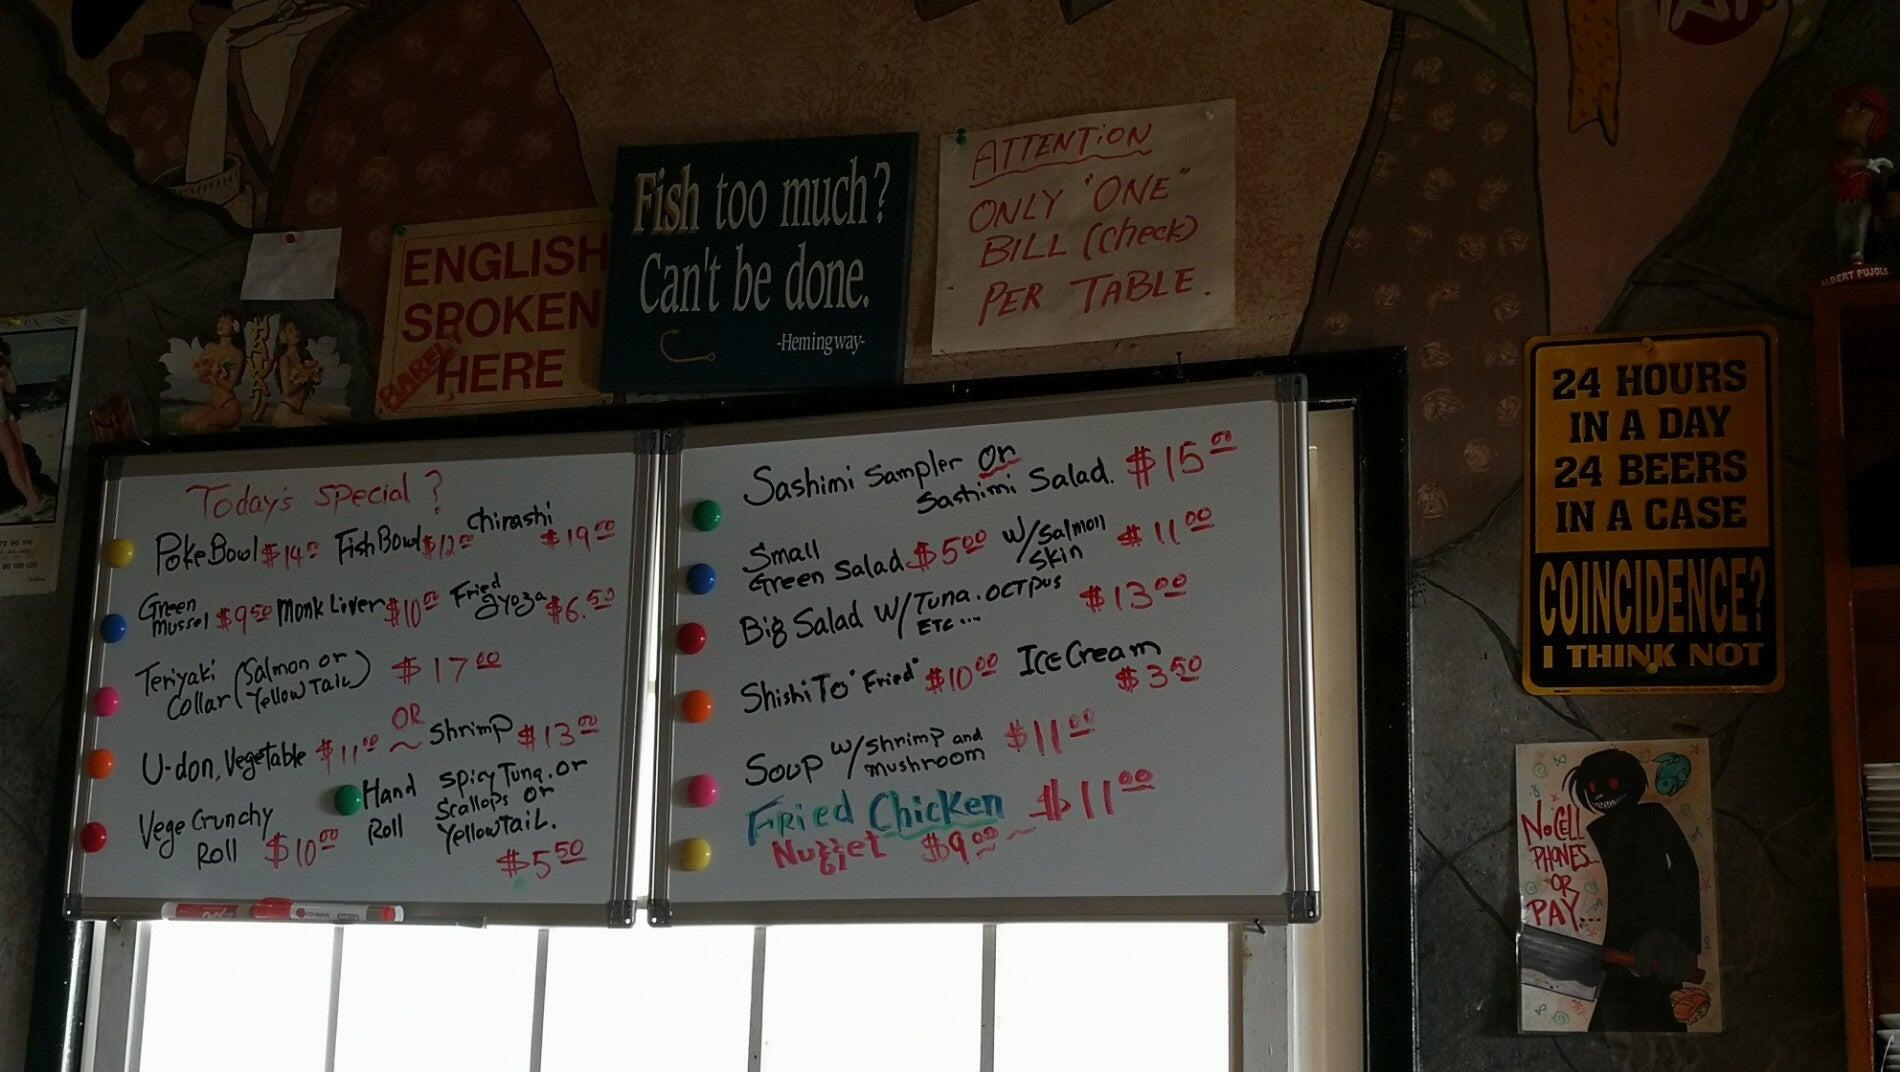 ENGLISH
SPOKEN
HERE
BARELY
Fish too much?
Can't be done.
-Hemingway-
ATTENTION
ONLY "ONE"
BILL (check)
PER TABLE.
ALBERT PUJOLS
HAWAII
24 HOURS
IN A DAY
24 BEERS
IN A CASE
COINCIDENCE?
I THINK NOT
Today's special?
Poke Bowl $14.00 Fish Bowl $12.00 Chirashi $19.00
Green Mussel $9.50 Monk Liver $10.00 Fried gyoza $6.50
Teriyaki Collar (Salmon or Yellow Tail) $17.00
U-don, Vegetable $11.00 OR Shrimp $13.00
Vege Crunchy Roll $10.00
Hand Roll Spicy Tuna. or Scallops or Yellow Tail. $5.50
Sashimi Sampler or Sashimi Salad. $15.00
Small Green Salad $5.00 w/Salmon Skin $11.00
Big Salad w/Tuna. octpus ETC... $13.00
ShishiTo "Fried" $10.00 Ice Cream $3.50
Soup w/shrimp and mushroom $11.00
Fried Chicken $11.00
Nugget $9.00 ~
NO CELL
PHONES...
OR
PAY...